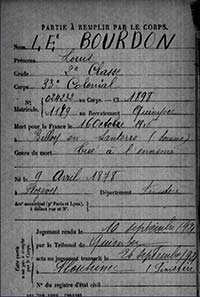 PARTIE À REMPLIR PAR LE CORPS.
Nom LE BOURDON
Prénoms Louis
Grade 2e Classe
Corps 33e Colonial
N° au Corps. — Cl. 1898
Matricule. 1119 au Recrutement Quimper
Mort pour la France le 16 Octobre
en Santerre (Somme)
Genre de mort Tué à l'ennemi
Né le 9 Avril 1878
à Département Finistère
Arr' municipal (pr Paris et Lyon),
à défaut rue et N°.
Jugement rendu le 10 septembre
par le Tribunal de Quimper
acte ou jugement transcrit le 26 septembre
à Plouhinec (Finistère
N° du registre d'état civil